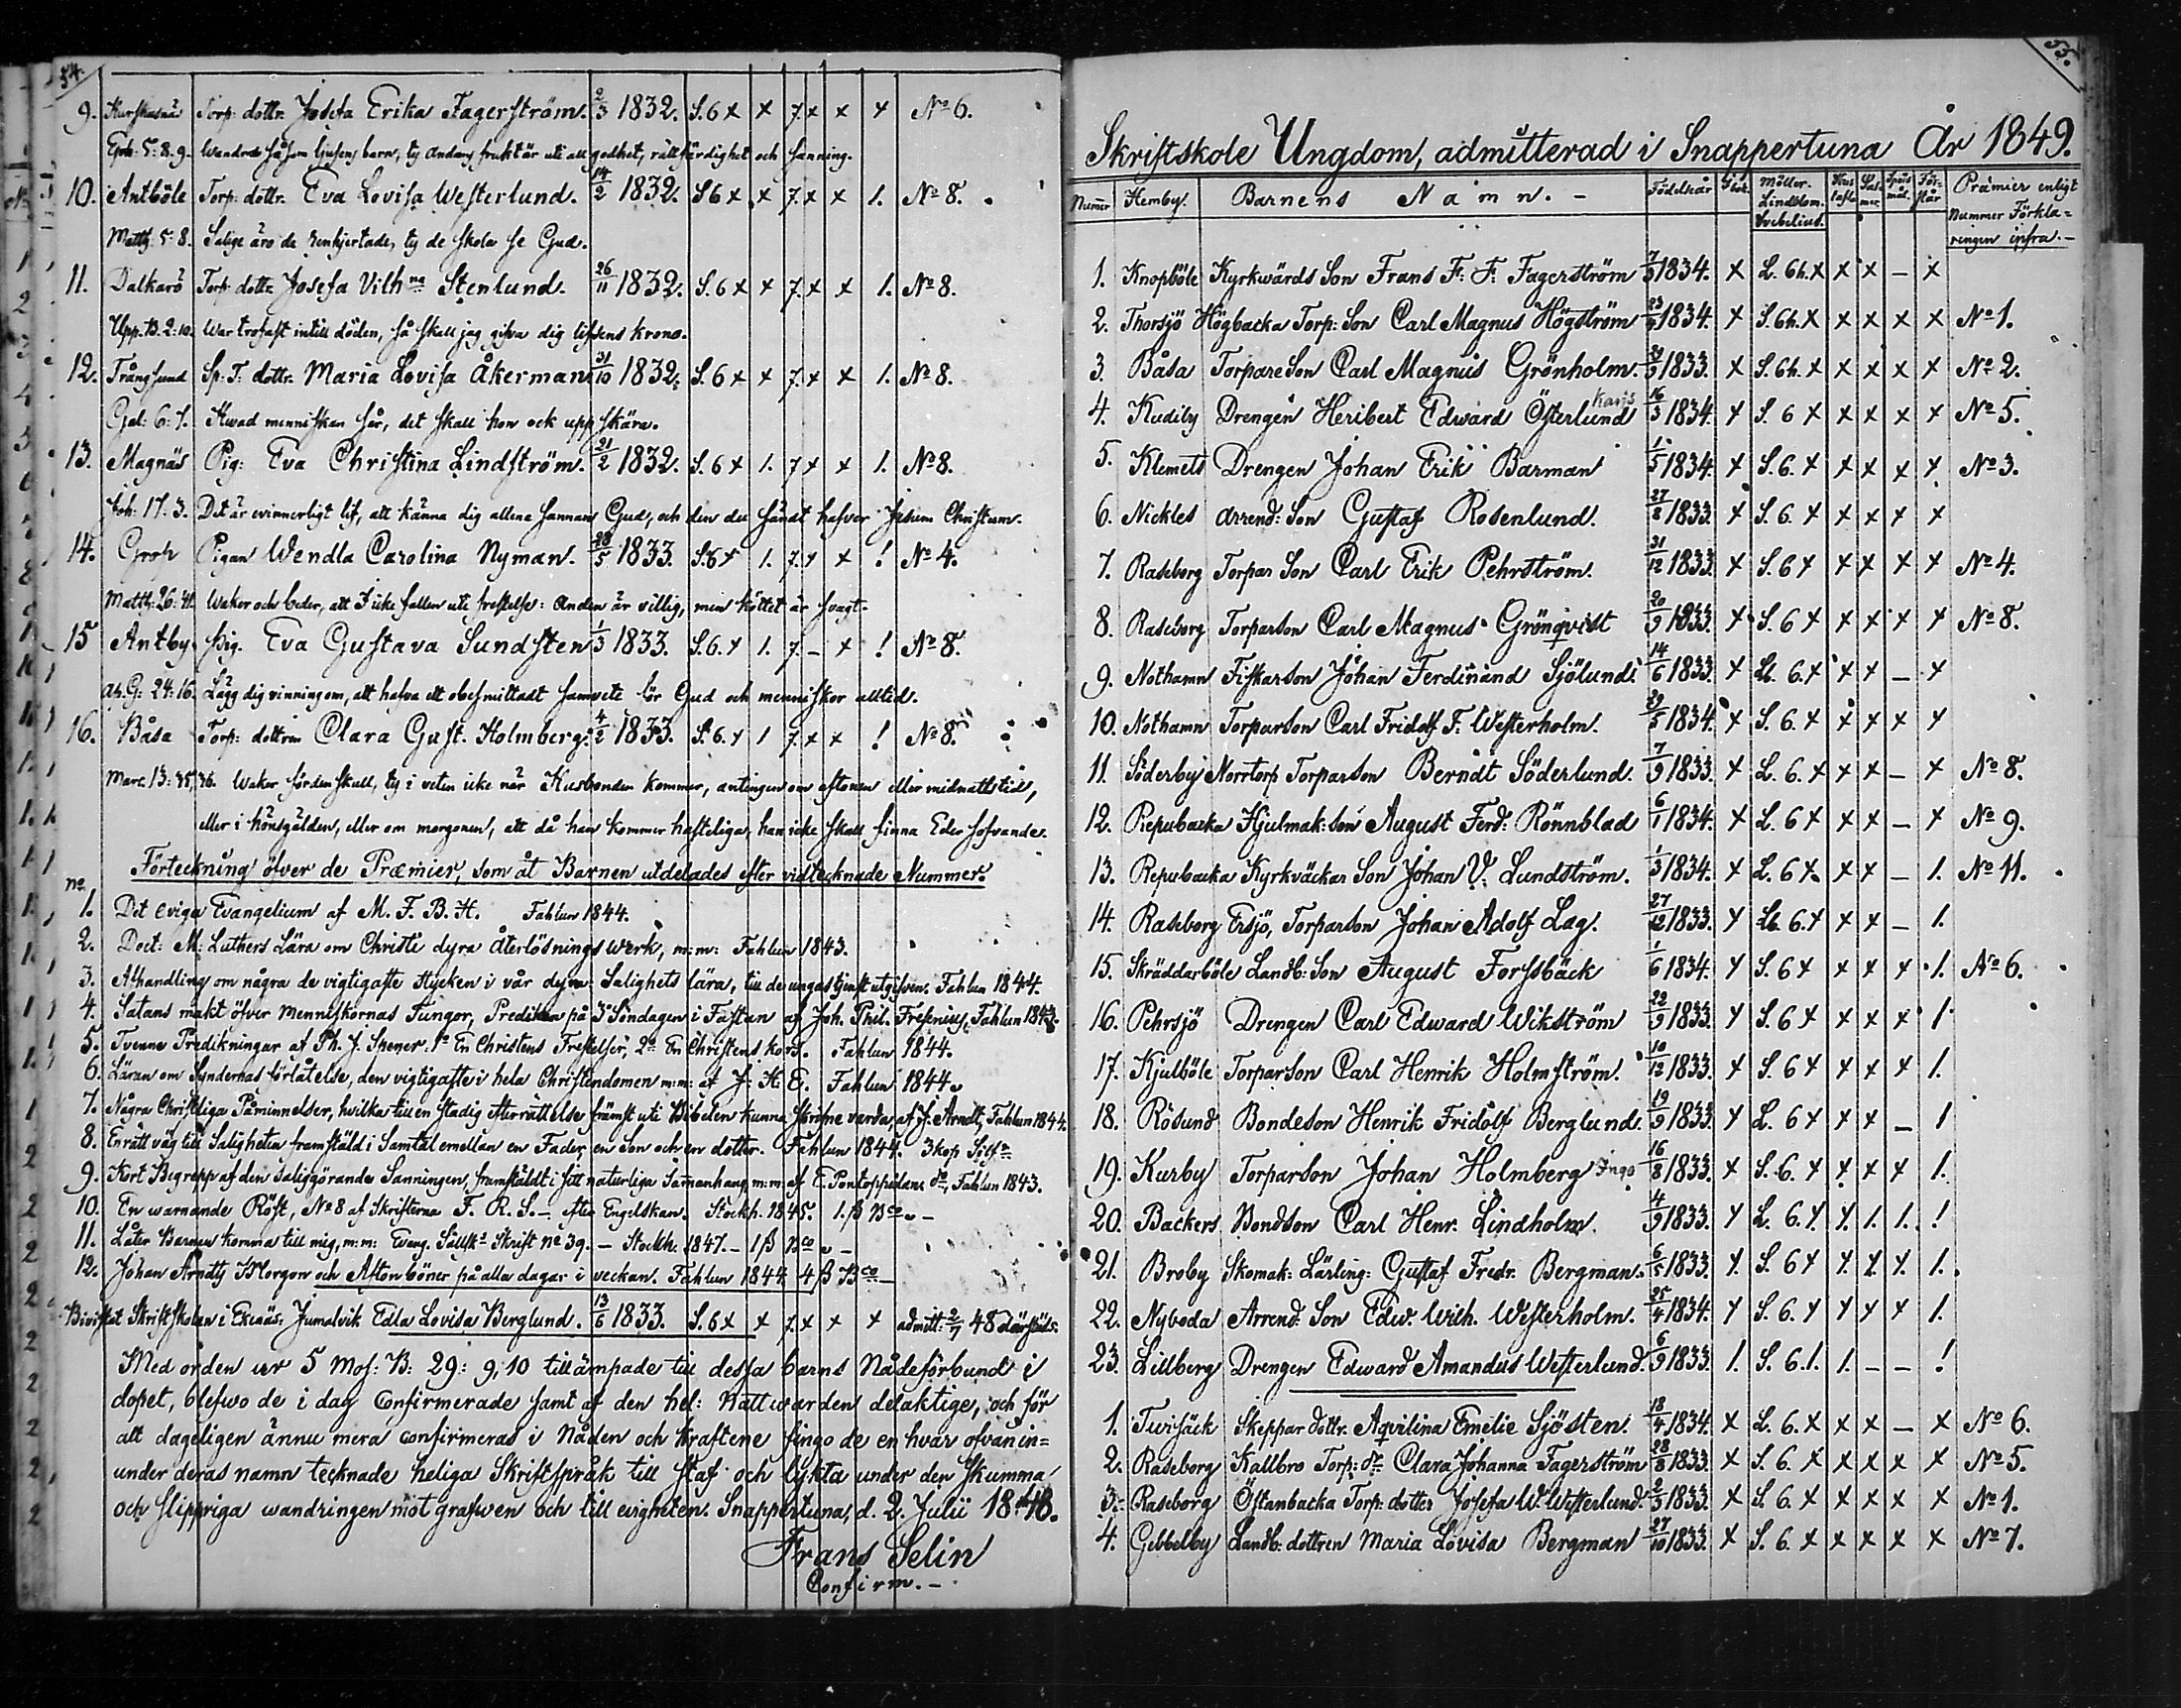 54.
9. Torp: dottr. Josefa Erika Fagerström. 2/3 1832. S. 6 x x 7. x x x No 6.
Eph: 5: 8. 9. Wandren såsom ljusens barn, ty andans frukt är uti all godhet, rättfärdighet och sanning.
10. Antböle Torp: dottr. Eva Lovisa Westerlund. 14/2 1832. S 6 x x 7. x x 1. No 8.
Matth: 5: 8. Salige äro de renhjertade, ty de skola se Gud.
11. Dalkarö Torp: dottr. Josefa Vilhna Stenlund. 26/11 1832. S. 6 x x 7. x x 1. No 8.
Upp. B. 2: 10. War trofast intill döden, så skall jag gifva dig lifsens krona.
12. Trångsund Sp: T: dottr. Maria Lovisa Åkerman 31/10 1832. S. 6 x x 7. x x 1. No 8.
Gal: 6: 7. Hwad menniskan sår, det skall hon ock uppskära.
13. Magnäs Pig: Eva Christina Lindström. 21/2 1832. S. 6 x 1. 7 x x 1. No 8.
Joh: 17: 3. Det är evinnerligt lif, att känna dig allena sannan Gud, och den du sändt hafver Jesum Christum.
14. Grop Pigan Wendla Carolina Nyman. 28/5 1833. S. 6 x 1. 7. x x ! No 4.
Matth: 26: 41. Waker och beder, att I icke fallen uti frestelse: anden är villig, men köttet är svagt.
15 Antby Pig. Eva Gustava Sundsten 1/3 1833. S. 6. x 1. 7. - x ! No 8.
Ap. G: 24: 16. Lägg dig vinning om, att hafva ett obesmittadt samvete för Gud och menniskor alltid.
16. Båsa Torp: dottren Clara Gust. Holmberg. 4/2 1833. S. 6. x 1 7. x x ! No 8.
Marc. 13: 35, 36. Waker fördenskull, ty i veten icke när Husbonden kommer, antingen om aftonen eller midnattstid,
eller i hönsgälden, eller om morgonen, att då han kommer hasteliga, han icke skall finna Eder sofvande.
Förteckning öfver de Præmier, som åt Barnen utdelades efter vidtecknade Nummer.
no.
1. Det eviga Evangelium af M. F. B. H. Fahlun 1844.
2. Doct: M: Luthers Lära om Christi dyra återlösnings werk, m: m: Fahlun 1843.
3. Afhandling om några de vigtigaste stycken i vår dyra Salighets lära, till de ungas tjenst utgifven. Fahlun 1844.
4. Satans makt öfver menniskornas Tungor, Predikan på 3e Söndagen i Fastan af Joh. Phil. Fresenius, Fahlun 1843.
5. Tvenne Predikningar af Ph. J. Spener. 1o En Christens Frestelser, 2o En Christens kors. Fahlun 1844.
6. Läran om Syndernas förlåtelse, den vigtigaste i hela Christendomen m: m: af J. H. E. Fahlun 1844.
7. Några Christliga Påminnelser, hvilka till en stadig efterrättelse främst uti Bibelen kunna skrifne varda, af J. Arndt, Fahlun 1844.
8. En rätt väg till Saligheten framstäld i Samtal emellan en Fader, en Son och en dotter. Fahlun 1844. 3 kop. Silfr
9. Kort Begrepp af den saliggörande Sanningen, framstäldt i sitt naturliga Samenhang m: m: af E. Pontoppidans dr, Fahlun 1843.
10. En warnande Röst, No 8 af Skrifterna F. R. S. - efter Engelskan. Stockh. 1845. 1. β Bco -
11. Låter Barnen komma till mig, m: m: Evang. Sällsk: Skrift no 39. - Stockh. 1847. - 1 β Bco -
12. Johan Arndts Morgon och Aftonböner på alla dagar i veckan. Fahlun 1844. 4 β Bco -
Bivistat Skriftskolan i Ekenäs: Jumalvik Edla Lovisa Berglund. 13/6 1833. S. 6 x x 7. x x x admitt: 2/7 48 därstäds.
Med orden ur 5 Mos: B: 29: 9, 10 tillämpade till dessa barns Nådeförbund i
dopet, blefwo de i dag Confirmerade samt af den hel: Nattwarden delaktige, och för
att dageligen ännu mera confirmeras i Nåden och Kraftene fingo de en hvar ofvan in=
under deras namn tecknade heliga Skriftspråk till staf och lykta under den skumma
och slippriga wandringen mot grafwen och till evigheten. Snappertuna, d. 2. Julii 1848.
Frans Selin
Confirm. -
55.
Skriftskole Ungdom, admitterad i Snappertuna År 1849.
Numer Hemby. Barnens Namn. - Födelseår Möller. Lindblom. Svebelius. Hus tafla Spörs mål. För står Præmier enligt nummer Förkla= ringen infra. -
1. Knopböle Kyrkwärds Son Frans F. F. Fagerström 7/9 1834. x L. 6h. x x x - x
2. Thorsjö Högbacka Torp: Son Carl Magnus Högström 23/9 1834. x S. 6h. x x x x x No 1.
3. Båsa Torpare Son Carl Magnus Grönholm. 1833. x S. 6h. x x x x x No 2.
4. Kudiby Drengen Heribert Edward Österlund Karis 16/3 1834. x S. 6 x x x x x No 5.
5. Klemets Drengen Johan Erik Barman 1/5 1834. x S. 6. x x x x x No 3.
6. Nickles Arrend: Son Gustaf Rosenlund. 27/2 1833. x S. 6. x x x x x
7. Raseborg Torpar Son Carl Erik Pehrström. 31/12 1833. x S. 6 x x x x x No 4.
8. Raseborg Torparson Carl Magnus Grönqvist 20/9 1833. x S. 6 x x x x x No 8.
9. Nothamn Fiskarson Johan Ferdinand Sjölund. 14/6 1833. x L. 6. x x x - x
10. Nothamn Torparson Carl Fridolf F. Westerholm. 29/5 1834. x S. 6. x x x x x
11. Söderby Norrtorp Torparson Berndt Söderlund. 7/9 1833. x L. 6. x x x - x No 8.
12. Repubacka Hjulmak: Son August Ferd: Rönnblad 6/1 1834. x L. 6 x x x - x No 9.
13. Repubacka Kyrkväckar Son Johan V. Lundström. 1/3 1834. x L. 6 x x x - 1. No 11.
14. Raseborg Ersjö, Torparson Johan Adolf Lag. 27/12 1833. x L. 6. x x x - 1.
15. Skräddarböle Landb: Son August Forssbäck 1/6 1834. x S. 6 x x x x 1. No 6.
16. Pehrsjö Drengen Carl Edward Wikström 22/9 1833. x S. 6 x x x x 1
17. Kjulböle Torparson Carl Henrik Holmström. 10/12 1833. x S. 6 x x x x 1.
18. Rösund Bondeson Henrik Fridolf Berglund. 19/9 1833. x L. 6 x x x - 1
19. Kurby Torparson Johan Holmberg Ingo 16/8 1833. x S. 6. x x x x 1.
20. Backers Bondson Carl Henr. Lindholm. 4/9 1833. x L. 6. x x 1. 1. !
21. Broby Skomak: Lärling: Gustaf Fredr. Bergman. 6/5 1833. x S. 6 x x x x 1.
22. Nyboda Arrend: Son Edw. Wilh. Westerholm. 25/4 1834. x S. 6. x x x x 1.
23. Lillberg Drengen Edward Amandus Westerlund. 6/9 1833. 1. S. 6. 1. 1. - - !
1. Twisäck Skeppar dottr. Aqvilina Emelie Sjösten. 18/4 1834. x L. 6. x x x - x No 6.
2. Raseborg Kallbro Torp: dr Clara Johanna Fagerström 28/8 1833. x S. 6. x x x x x No 5.
3. Raseborg Östanbacka Torp: dotter Josefa W. Westerlund. 2/3 1833. x S. 6. x x x x x No 1.
4. Gebbelby Landb: dottren Maria Lovisa Bergman 27/10 1833. x S. 6. x x x x x No 7.